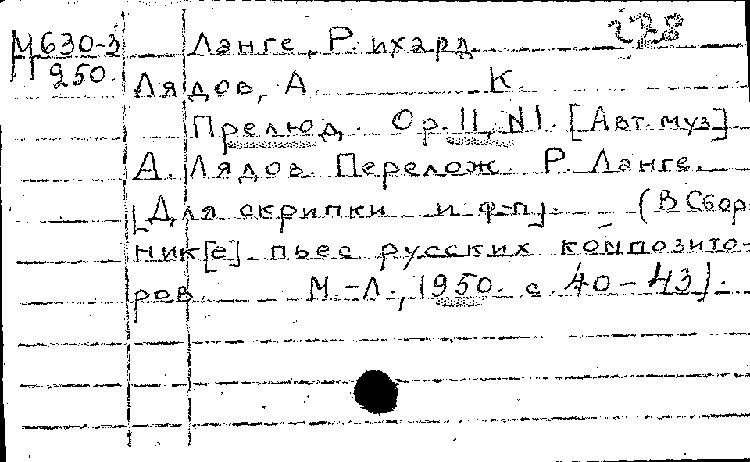 М630-3 Ланге, Рихард 228
П 250
Лядов, А. К.
Прелюд. Ор. 11, N1. [Авт. муз]
А. Лядов. Перелож. Р. Ланге.
[Для скрипки и ф-п]. (В Сбор-
ник[е] пьес русских композито-
ров. М.-Л., 1950. с. 40-43).